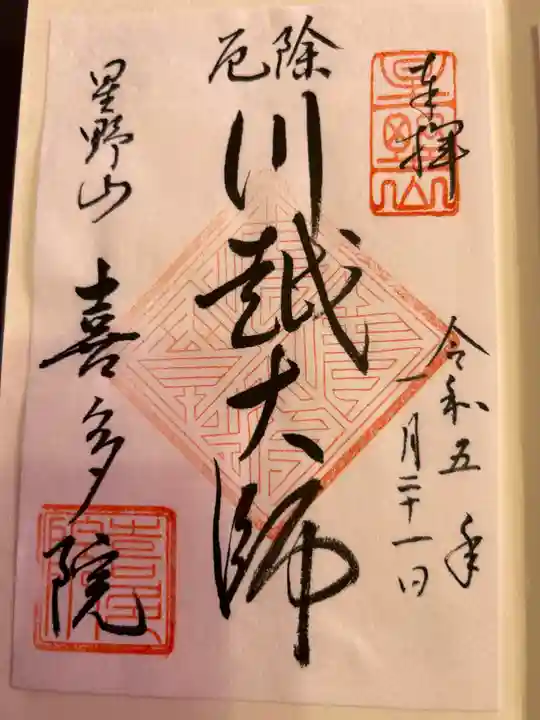 奉拝
令和五年
一月二十一日
厄除
川越大師
星野山
喜多院
星野山
喜多院